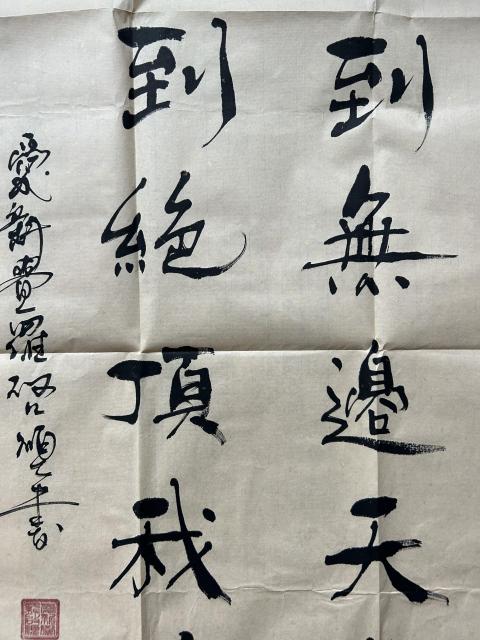 到無邊天
到絕頂我
愛新覺羅書